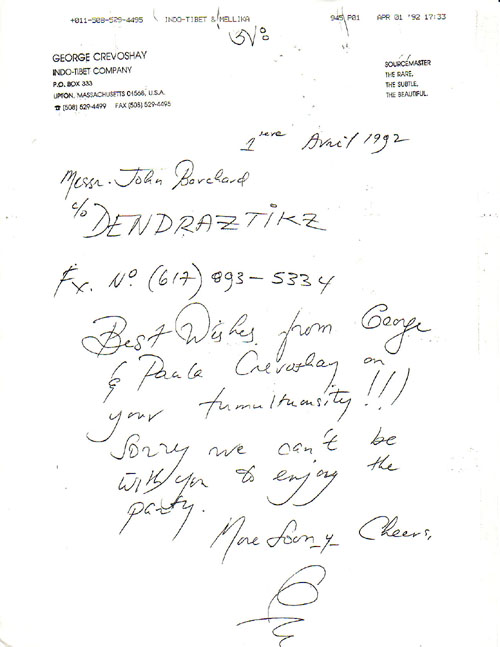 +011-508-529-4495 INDO-TIBET & MELLIKA 945 P01 APR 01 '92 17:33
GEORGE CREVOSHAY
INDO-TIBET COMPANY
P.O. BOX 333
UPTON, MASSACHUSETTS 01568, U.S.A.
☎ (508) 529-4499 FAX (508) 529-4495
SOURCEMASTER
THE RARE.
THE SUBTLE.
THE BEAUTIFUL.
1 Avril 1992
Messr. John Borchard
c/o DENDRAZTIKZ
Fx. No (617) 893-5334
Best Wishes from George
& Paula Crevoshay on
your tumultuusity!!!
Sorry we can't be
with you to enjoy the
party.
More Soon, Cheers,